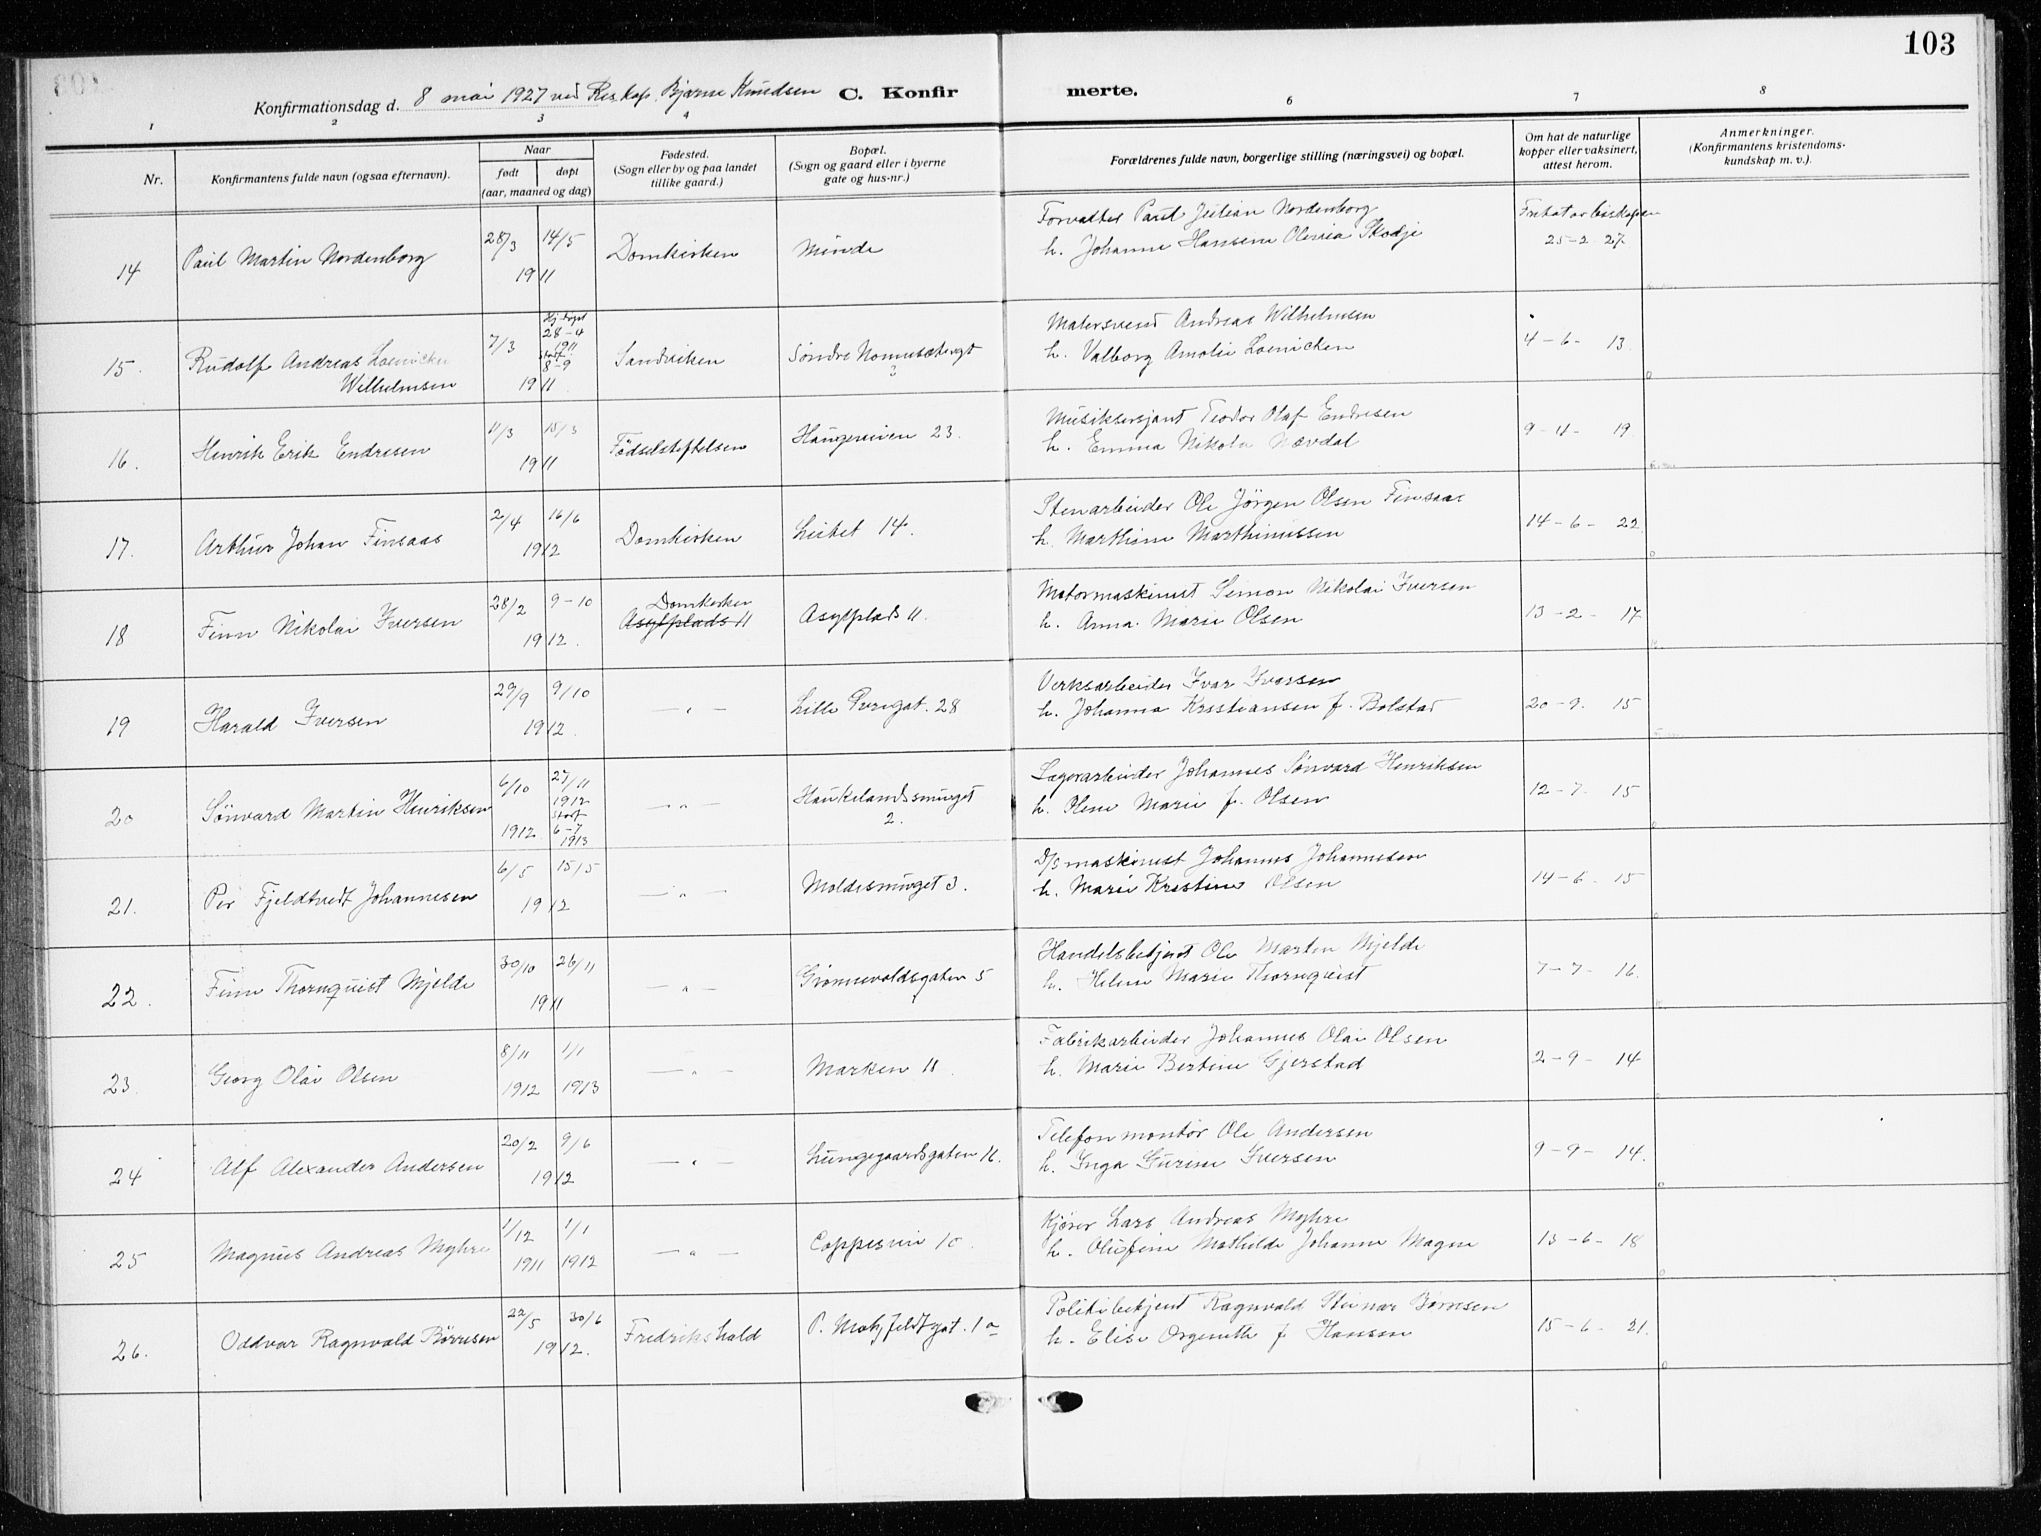 103
Konfirmationsdag d. 8 mai 1927 ved Res. kap. Bjarne Knudsen C. Konfirmerte.
1 2 3 4 6 7 8
Nr.
Konfirmantens fulde navn (ogsaa efternavn).
Naar
født døpt
(aar, maaned og dag)
Fødested.
(Sogn eller by og paa landet
tillike gaard.)
Bopæl.
(Sogn og gaard eller i byerne
gate og hus-nr.)
Forældrenes fulde navn, borgerlige stilling (næringsvei) og bopæl.
Om hat de naturlige
kopper eller vaksinert,
attest herom.
Anmerkninger.
(Konfirmantens kristendoms-
kundskap m. v.)
14 Paul Martin Nordenborg 28/3 14/5 1911 Domkirken Minde
Forvalter Paul Julian Nordenborg
h. Johanne Hansine Olevia Skodje
Fritat av biskopen
25-2 27.
15. Rudolf Andreas Loenicken
Wilhelmsen
7/3 1911
Hj. døpt
28-4
1911
Stadf.
8-9
Sandviken Søndre 3
Malersvend Andreas Wilhelmsen
h. Valborg Amalie Loenicken
4-6- 13.
16. Henrik Erik Endresen 11/3 15/3 1911 Födselsstiftelsen Haugeveien 23.
Musiksersjant Teodor Olaf Endresen
h. Emma Nikola Nævdal
9-4- 19.
17. Arthur Johan Finsaas 2/4 16/6 1912 Domkirken Leitet 14.
Stenarbeider Ole Jörgen Olsen Finsaas
h. Marthine Marthinussen
14-6- 22.
18 Finn Nikolai Iversen 28/2 9-10 1912. Domkirken
Asylplads 11 Asylplads 11.
Motormaskinist Simon Nikolai Iversen
h. Anna Marie Olsen
13-2- 17.
19 Harald Iversen 29/9 9/10 1912. — " — Lille Øvregat. 28
Verksarbeider Ivar Iversen
h. Johanna Kristiansen f. Bolstad
20-9. 15
20 Sönvard Martin Henriksen 6/10 1912.
27/11
1912
Stadf
6-7
1913
— " — Haukelandssmuget
2.
Lagerarbeider Johannes Sönvard Henriksen
h. Olene Marie f. Olsen
12-7. 15
21. Per Fjeldtvedt Johannesen 6/5 15/5 1912 — " — Moldesmuget 3.
D/S maskinist Johannes Johannesen
h. Marie Kristine Olsen
14-6. 15
22. Finn Thornquist Mjelde 30/10 26/11 1911 — " — Grönnevoldsgaten 5
Handelsbetjent Ole Martin Mjelde
h. Helene Marie Thornquist
7-7- 16.
23 Georg Olai Olsen 8/11 1/1 1912 1913 — " — Marken 11.
Fabrikarbeider Johannes Olai Olsen
h. Marie Bertine Gjerstad
2-9- 14
24 Alf Alexander Andersen 20/2 9/6 1912 — " — Lungegaardsgaten 16.
Telefonmontör Ole Andersen
h. Inga Gurine Iversen
9-9- 14.
25 Magnus Andreas Myhre 1/12 1/1 1911 1912 — " — Coppesmei 10.
Kjörer Lars Andreas Myhre
h. Olufine Mathilde Johanne Magne
13-6- 18
26. Oddvar Ragnvald Börresen 22/5 30/6 1912. Fredrikshald P. Motzfeldtgat. 1a
Politibetjent Ragnvald Steinar Börresen
h. Elise f Hansen
15-6- 21.